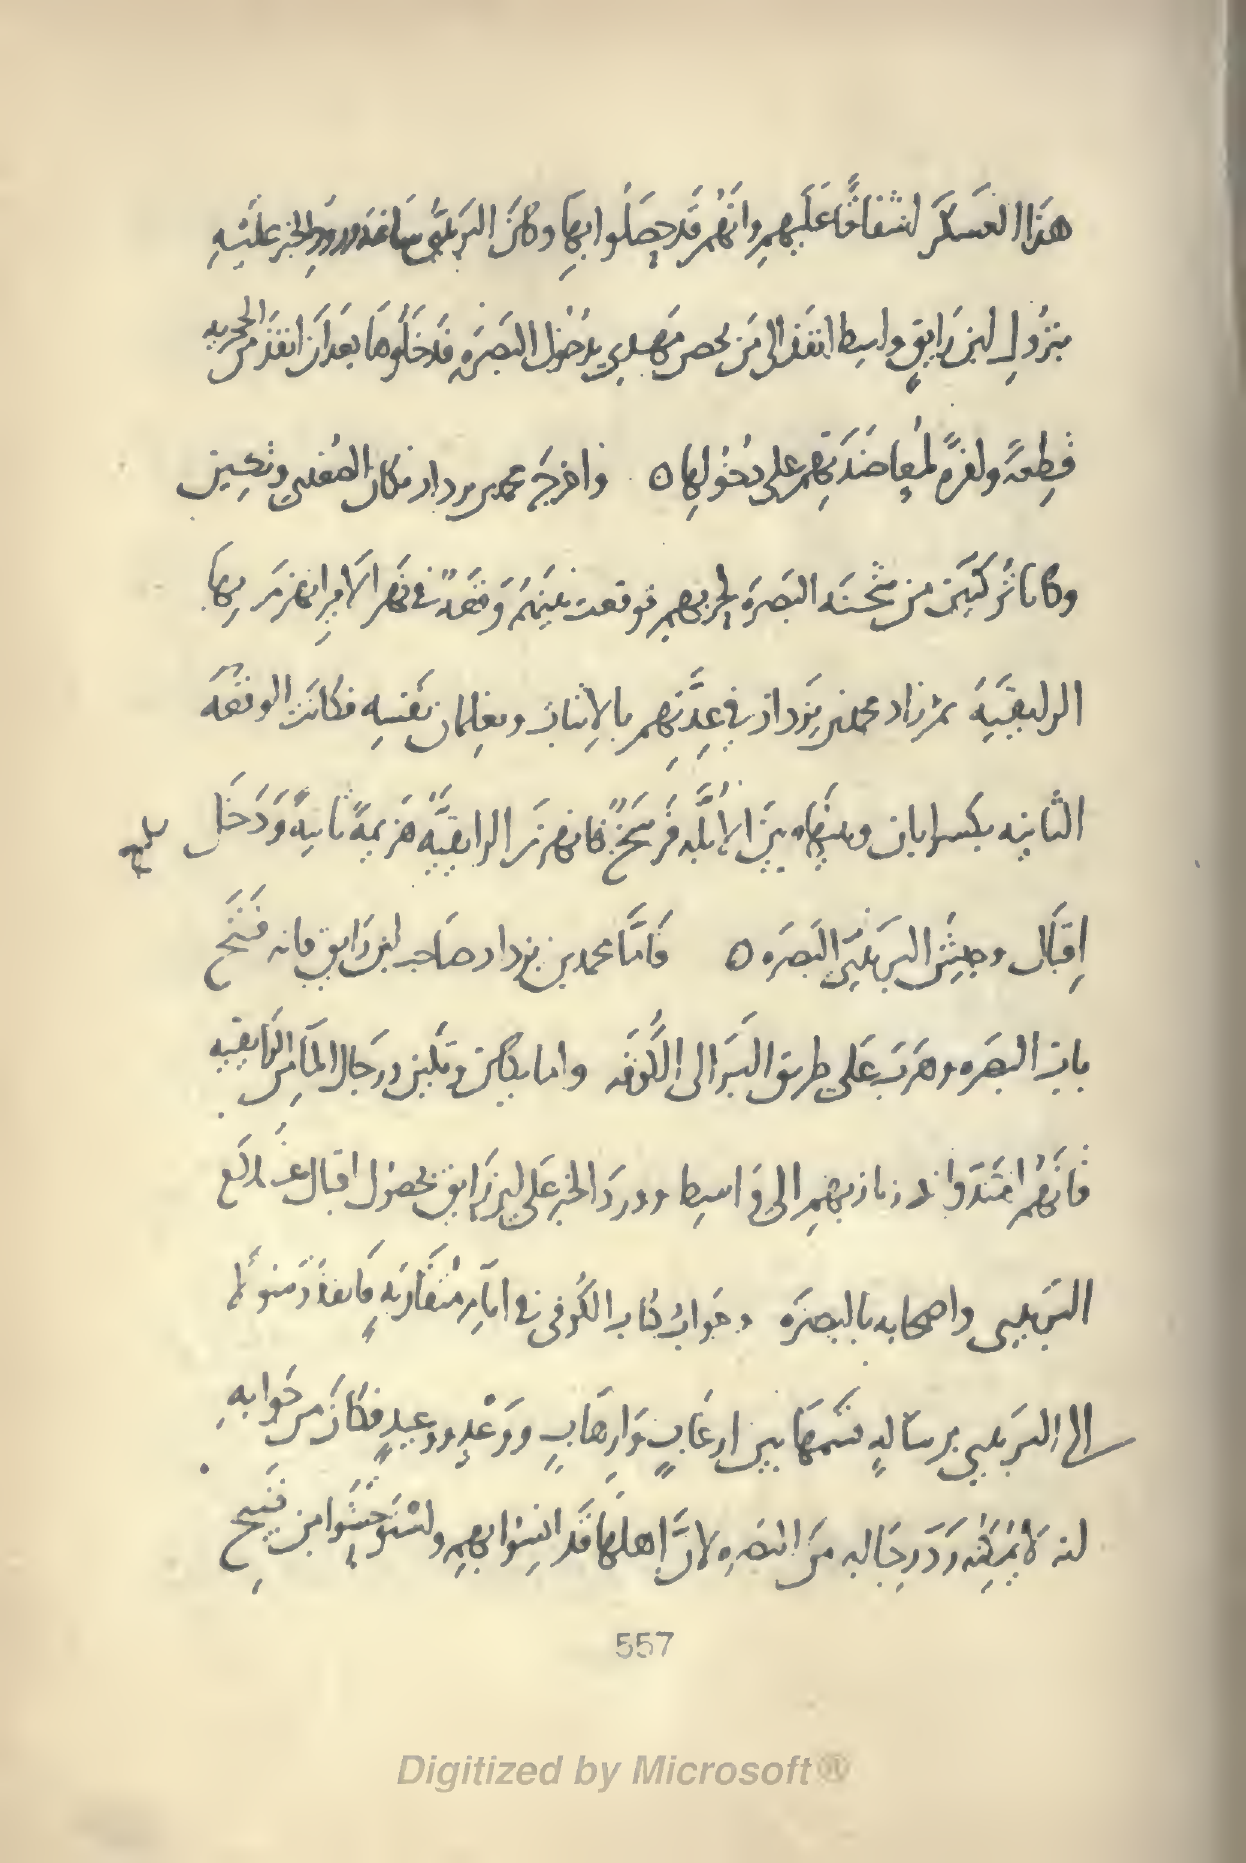 هَذا العَسكَر اشفاقًا عَلَيهِم وانهُم قَد حَصَلُوا بهَا وكانَ البَريدِيّ ساعَة ورود الخبَر عَلَيْهِ
بنزُولِ ابن رَايقٍ واسِط انفَذ الى مَن بحصن مَهدِي بدُخول البَصرَه فَدَخَلُوهَا بعدَ ان انفَذ من الحجريه
قِطعَةً وافرَةً لمُعاضَدَتِهِم على دُخُولِهَا ٥ واخرجَ محمد بن يزداد مكان الصُغدي وتكِين
وكانا تُركيَّين من شحنَة البَصرَه لحربهم فوقعت بَينَهُم وَقعَةٌ في نهَر الامِير انهزمَ بِهَا
الرايقيَّة ثم زاد محمد بن يزداد في عِدَّتِهِم بالاثبَات وبغلمان نَفسِه فكانت الوَقعَة
الثانِيه بكسر ابان وبينهَا وبَيْنَ الاُبُلّه فَرسَخٌ فانهزمَ الرايقيَّة هَزِيمَةً ثانِيَةً وَدَخَل
اِقبَال وجيشُ البَريدِيّ البَصرَه ٥ فَامّا محمد بن يزداد صَاحب ابن رَايق فانه فَتَح
بابَ البصَره وهَرَبَ عَلى طريق البَر الى الكُوفَه واما تكين ونكين ورجال المآء من الرايقيه
فانهُم الى وَاسِط وورَدَ الخبر عَلى ابن رَايق بحصُول اقبال مَع
البَريدي واصحابه بالبصرَه وجَوابُ كتاب الكُوفي في ايام مُتقاربَه
الى البَريدي برسَالةٍ بين ارغَابٍ وَارهَابٍ وَوَعْدٍ ووعِيدٍ فكانَ من جَوابِهِ
انه لا يُمكِنُه رَدَّ رِجَاله مِنَ البَصرَه لانّ اهلهَا قَد انِسُوا بهِم واستَوحَشُوا من قَبيح
557
Digitized by Microsoft®